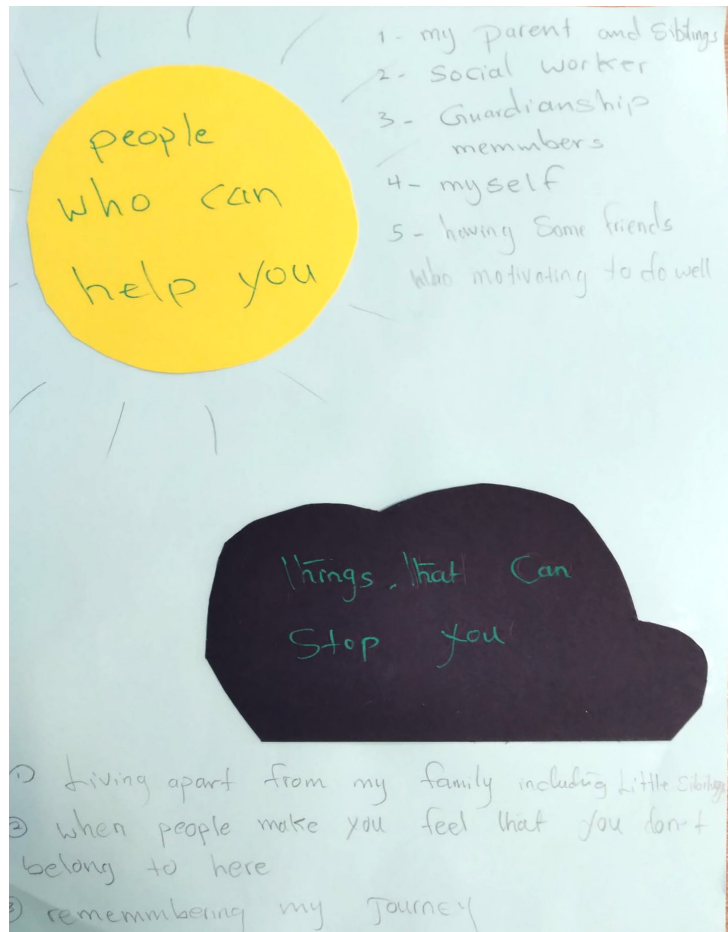 people
who can
help you
1 - my parent and Sibtings
2 - Social worker
3 - Guardianship
memmbers
4 - myself
5 - having Some friends
who motivating to do well
things that can
Stop you
① Living apart from my family including Little Siblings
② when people make you feel that you don't
belong to here
③ rememmbering my Journey